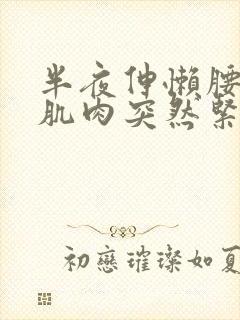 半夜伸懒腰
肌肉突然紧
初戀璀璨如夏